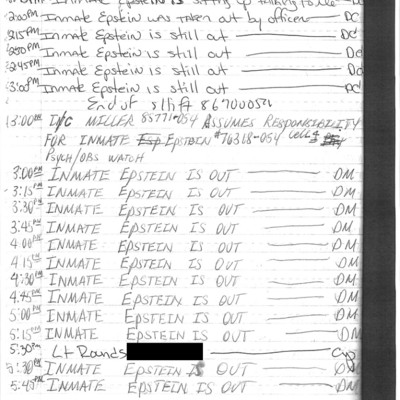 Inmate Epstein is sitting up talking to me
2:00pm Inmate Epstein was taken out by officer — DC
2:15pm Inmate Epstein is still out — DC
2:30pm Inmate Epstein is still out — DC
2:45pm Inmate Epstein is still out — DC
3:00pm Inmate Epstein is still out — DC
End of shift 86700054
3:00PM I/C MILLER 85771-054 ASSUMES RESPONSIBILITY
FOR INMATE Esp EPSTEIN #76318-054 cell 4
PSYCH/OBS WATCH
3:00PM INMATE EPSTEIN IS OUT — DM
3:15PM INMATE EPSTEIN IS OUT — DM
3:30PM INMATE EPSTEIN IS OUT — DM
3:45PM INMATE EPSTEIN IS OUT — DM
4:00PM INMATE EPSTEIN IS OUT — DM
4:15PM INMATE EPSTEIN IS OUT — DM
4:30PM INMATE EPSTEIN IS OUT — DM
4:45PM INMATE EPSTEIN IS OUT — DM
5:00PM INMATE EPSTEIN IS OUT — DM
5:15PM INMATE EPSTEIN IS OUT — DM
5:30PM Lt Rounds
5:30PM INMATE EPSTEIN IS OUT — DM
5:45PM INMATE EPSTEIN IS OUT — DM